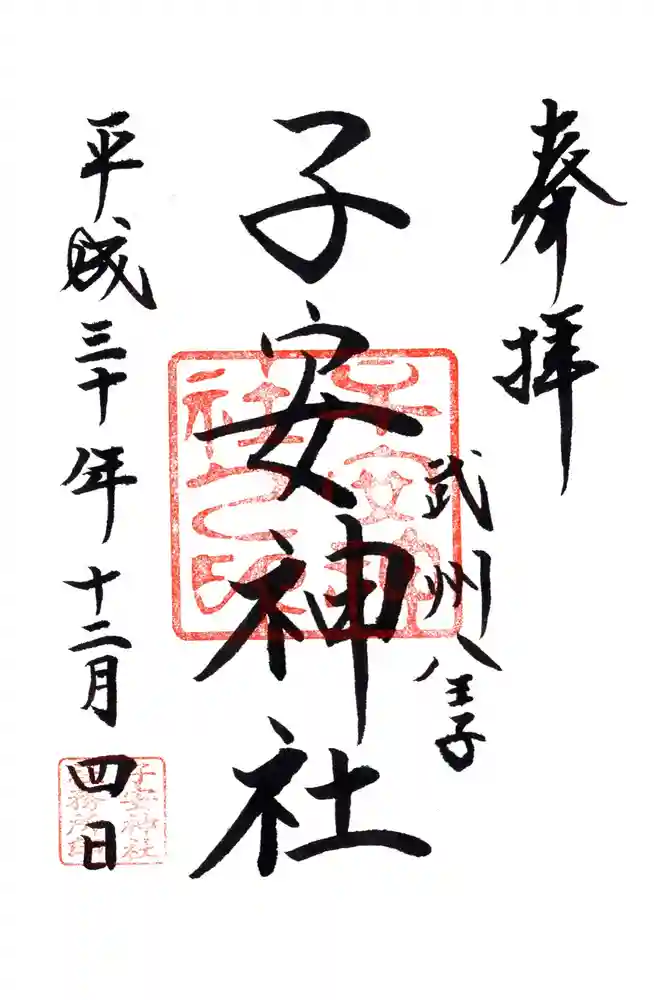 奉拝
武州八王子
子安神社
子安神
社之印
平成三十年十二月四日
子安神社
社務所印